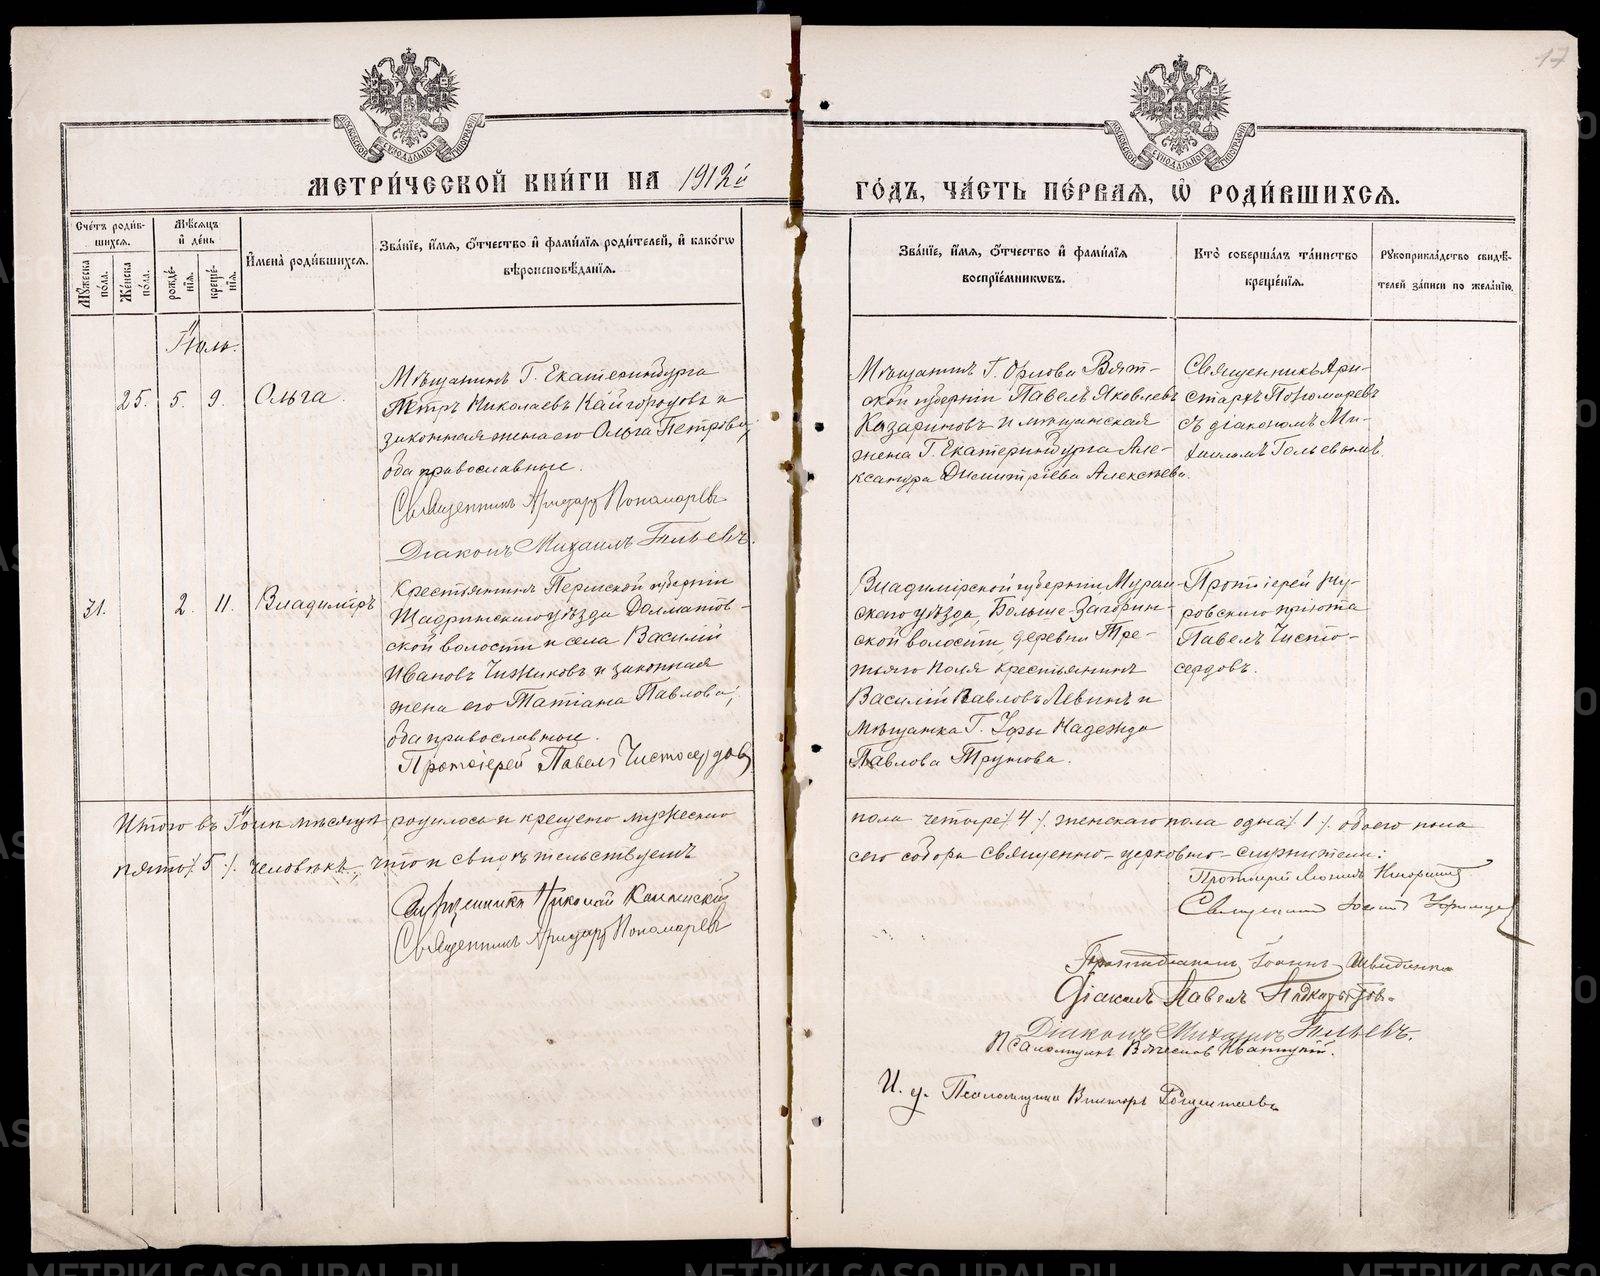 17
МЕТРИ́ЧЕСКОЙ КНИ́ГИ НА 1912й
ГО́ДЪ, ЧА́СТЬ ПЕ́РВАЯ, Ѽ РОДИ́ВШИХСЯ.
Сче́тъ роди́вшихся.
Му́жеска по́ла.
Же́нска по́ла.
Мѣ́сяцъ и҆ де́нь
рожде́нїя.
креще́нїя.
И҆мена̀ роди́вшихся.
Зва́нїе, и҆́мя, ѻ҆́тчество и҆ фами́лїя роди́телей, и҆ како́гѡ
вѣроисповѣ́данїя.
Зва́нїе, и҆́мя, ѻ҆́тчество и҆ фами́лїя
воспрїе́мникѡвъ.
Кто̀ соверша́лъ та́инство
креще́нїя.
Рукоприкла́дство свидѣ́-
телей за́писи по жела́нїю.
Іюль.
25. 5. 9. Ольга.
Мѣщанинъ Г. Екатеринбурга
Петръ Николаевъ Кайгородовъ и
законная жена его Ольга Петрова;
оба православные.
Священникъ Аристархъ Пономаревъ
Діаконъ Михаилъ Гольевъ.
Мѣщанинъ Г. Орлова Вят-
ской губерніи Павелъ Яковлевъ
Казариновъ и мѣщанская
жена Г. Екатеринбурга Але-
ксандра Димитріева Алексѣева.
Священникъ Ари-
стархъ Пономаревъ
съ діакономъ Ми-
хаиломъ Гольевымъ.
31. 2. 11. Владиміръ
Крестьянинъ Пермской губерніи
Шадринскаго уѣзда Далматов-
ской волости и села Василій
Ивановъ Чижиковъ и законная
жена его Татіана Павлова;
оба православные.
Протоіерей Павелъ Чистосердовъ
Владимірской губерніи, Муром-
скаго уѣзда, Больше-Загорин-
ской волости, деревни Тре-
тьяго Поля крестьянинъ
Василій Павловъ Левинъ и
мѣщанка Г. Уфы Надежда
Павлова Трунова.
Протоіерей Ну-
ровскаго пріюта
Павелъ Чисто-
сердовъ.
Итого въ Іюлѣ мѣсяцѣ родилось и крещено мужеского
пола четыре /4/. женскаго пола одна /1/. обоего пола
пять /5/. человѣкъ, что и свидѣтельствуемъ
сего собора священно-церковно-служители:
Священникъ Николай
Священникъ Аристархъ Пономаревъ
Протоіерей
Священникъ
Протодіаконъ Іоаннъ
Діаконъ Павелъ
Діаконъ Михаилъ Гольевъ.
Псаломщикъ
И. д. Псаломщика Викторъ
METRIKI.CASO-URAL.RU